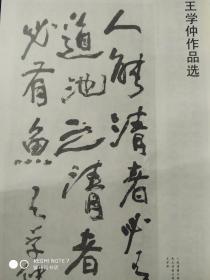 王学仲作品选
人能清者必
道池之清者
必有魚 王学仲
REDMI NOTE 7